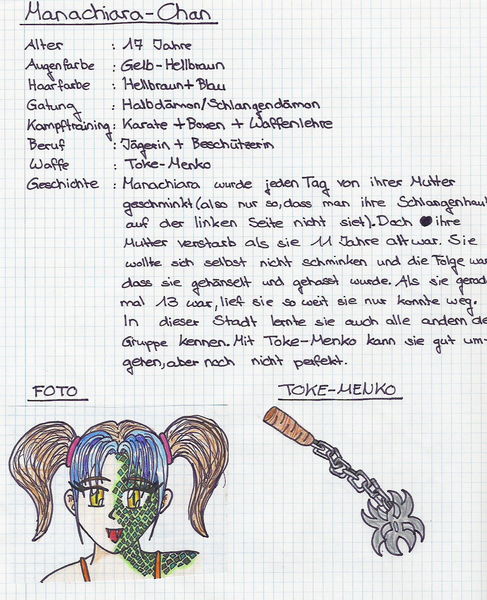 Manachiara-Chan
Alter : 17 Jahre
Augenfarbe : Gelb-Hellbraun
Haarfarbe : Hellbraun+Blau
Gatung : Halbdämon/Schlangendämon
Kampftraining: Karate + Boxen + Waffenlehre
Beruf : Jägerin + Beschützerin
Waffe : Toke-Menko
Geschichte : Manachiara wurde jeden Tag von ihrer Mutter
geschminkt (also nur so, dass man ihre Schlangenhaut
auf der linken Seite nicht siet). Doch ihre
Mutter verstarb als sie 11 Jahre alt war. Sie
wollte sich selbst nicht schminken und die Folge war
dass sie gehänselt und gehasst wurde. Als sie gerad
mal 13 war, lief sie so weit sie nur konnte weg.
In dieser Stadt lernte sie auch alle andern de
Gruppe kennen. Mit Toke-Menko kann sie gut um-
gehen, aber noch nicht perfekt.
FOTO
TOKE-MENKO